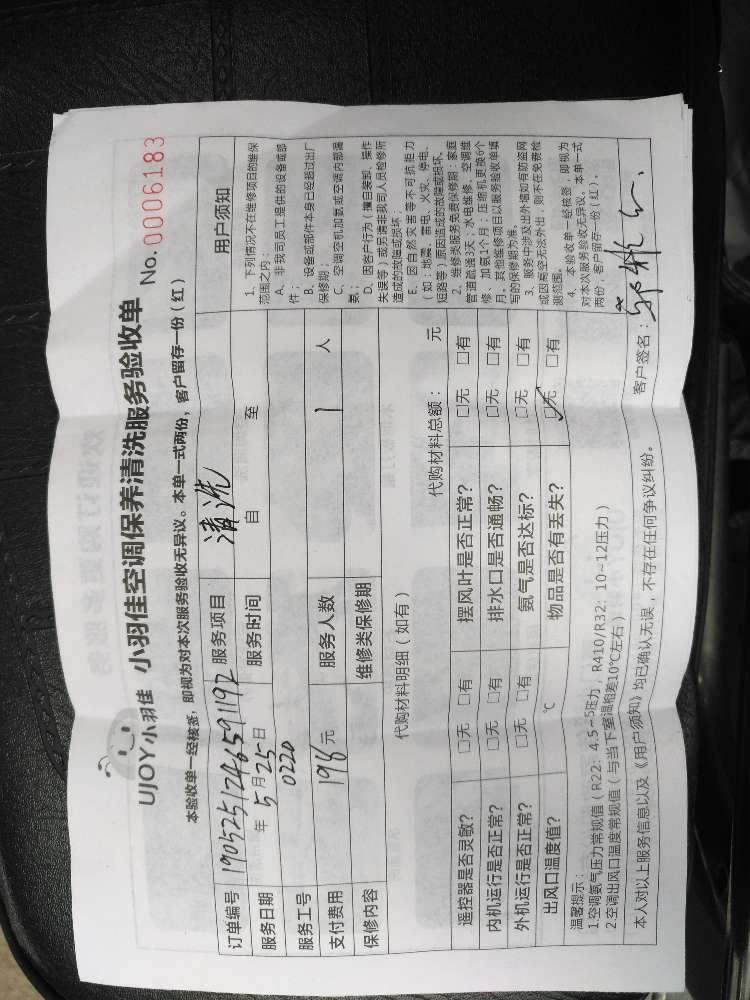 UJOY小羽佳 小羽佳空调保养清洗服务验收单 No. 0006183
本验收单一经核签，即视为对本次服务验收无异议。本单一式两份，客户留存一份（红）
订单编号 190525124659192 服务项目 清洗
服务日期 年 5月25日 服务时间 自 至
服务工号 0220
支付费用 198元 服务人数 1 人
保修内容 维修类保修期
代购材料明细（如有） 代购材料总额： 元
遥控器是否灵敏？ □无 □有 摆风叶是否正常？ □无 □有
内机运行是否正常？ □无 □有 排水口是否通畅？ □无 □有
外机运行是否正常？ □无 □有 氨气是否达标？ □无 □有
出风口温度值？ ℃ 物品是否有丢失？ □无 ✓ □有
用户须知
1、下列情况不在维修项目的维保
范围之内；
A、非我司员工提供的设备或部
件；
B、设备或部件本身已经超过出厂
保修期；
C、空调空机加氨或空调内部漏
氨；
D、因客户行为（擅自装卸、操作
失误等）或另请非我司人员检修所
造成的故障或损坏；
E、因自然灾害等不可抗拒力
（如：地震、雷电、火灾、停电、
短路等）原因造成的故障或损坏。
2、维修类服务免费保修期：家庭
管道疏强3天；水电维修、空调维
修、加氨1个月；压缩机更换6个
月。其他维修项目以服务验收单填
写的保修期为准。
3、服务中涉及出外墙如有防盗网
或因高空无法外出，则不在免费检
测范围。
4、本验收单一经核签，即视为
对本次服务验收无异议。本单一式
两份，客户留存一份（红）。
温馨提示：
1.空调氨气压力常规值（R22：4.5~5压力，R410/R32：10~12压力）
2.空调出风口温度常规值（与当下室温相差10℃左右）
本人对以上服务信息以及《用户须知》均已确认无误，不存在任何争议纠纷。 客户签名：